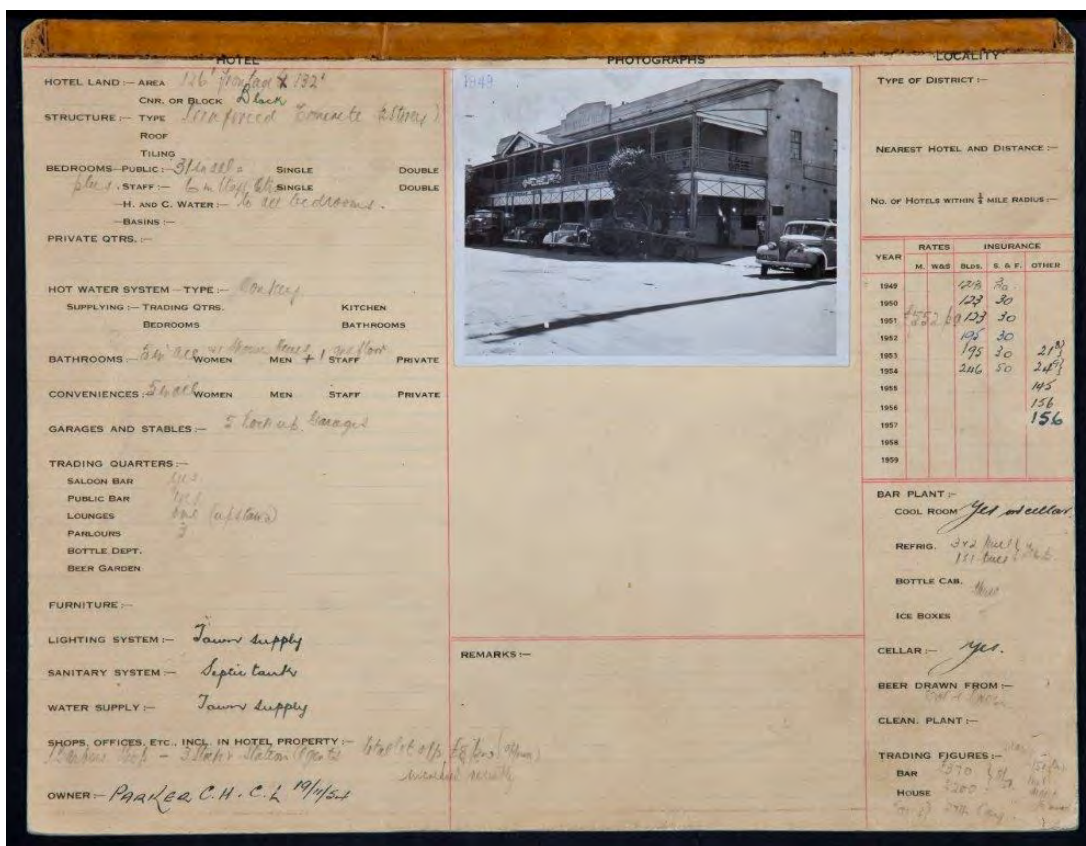 HOTEL
HOTEL LAND :— AREA 126' frontage x 132'
CNR. OR BLOCK Block
STRUCTURE :— TYPE Reinforced Concrete 2 Storey
ROOF
TILING
BEDROOMS—PUBLIC :— 31 in all SINGLE DOUBLE
plus STAFF :— 6 SINGLE DOUBLE
—H. AND C. WATER :— To all bedrooms.
—BASINS :—
PRIVATE QTRS. :—
HOT WATER SYSTEM — TYPE :— Donkey
SUPPLYING :— TRADING QTRS. KITCHEN
BEDROOMS BATHROOMS
BATHROOMS :— 5 in all WOMEN MEN + 1 STAFF PRIVATE
CONVENIENCES :— 5 in all WOMEN MEN STAFF PRIVATE
GARAGES AND STABLES :— 5 Lock up Garages
TRADING QUARTERS :—
SALOON BAR yes
PUBLIC BAR yes
LOUNGES one (upstairs)
PARLOURS 3
BOTTLE DEPT.
BEER GARDEN
FURNITURE :—
LIGHTING SYSTEM :— Town supply
SANITARY SYSTEM :— Septic tank
WATER SUPPLY :— Town supply
SHOPS, OFFICES, ETC., INCL. IN HOTEL PROPERTY :—
1 Barbers Shop — 3 Stock & Station Agents
OWNER :— PARKER C. H. C. L 19/11/54
PHOTOGRAPHS
1949
REMARKS :—
LOCALITY
TYPE OF DISTRICT :—
NEAREST HOTEL AND DISTANCE :—
NO. OF HOTELS WITHIN ¾ MILE RADIUS :—
YEAR RATES INSURANCE
M. W&S BLDG. S. & F. OTHER
1949 30
1950 123 30
1951 £552 123 30
1952 195 30
1953 195 30 21
1954 246 50 24
1955 145
1956 156
1957 156
1958
1959
BAR PLANT :—
COOL ROOM Yes and cellar
REFRIG.
BOTTLE CAB. three
ICE BOXES
CELLAR :— Yes.
BEER DRAWN FROM :—
CLEAN. PLANT :—
TRADING FIGURES :—
BAR £370
HOUSE £200